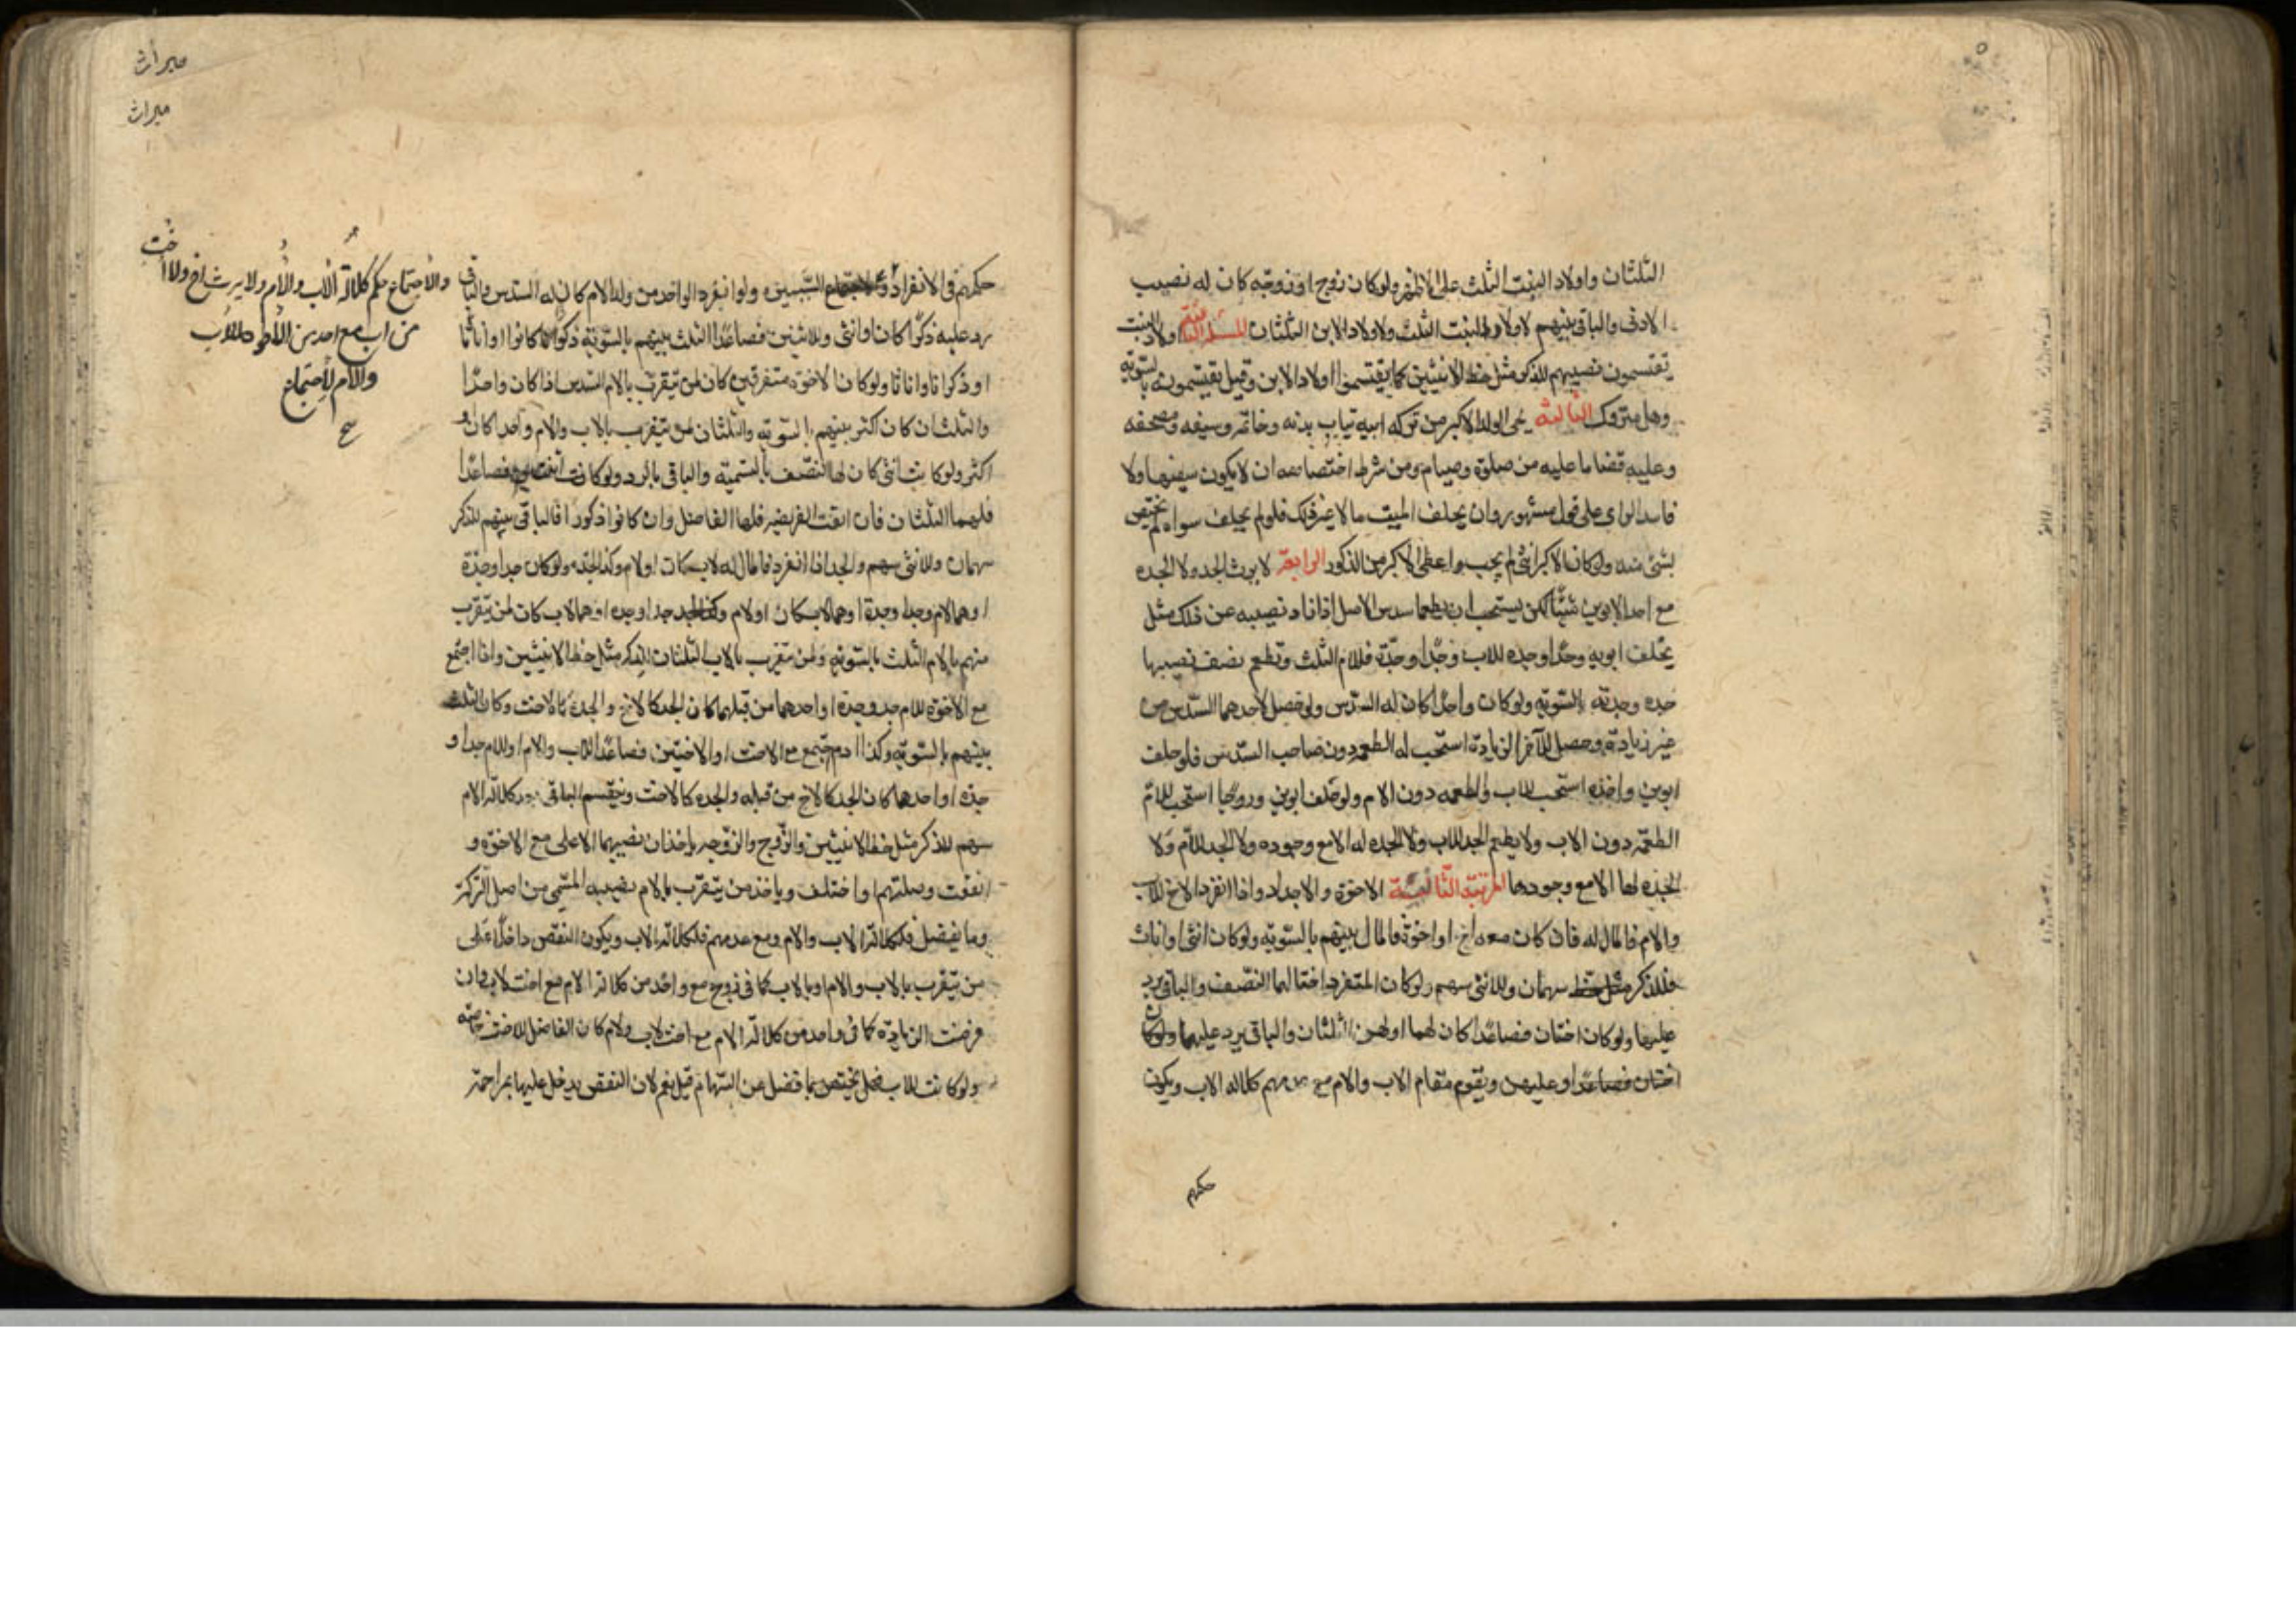 الثلثان واولاد البنت الثلث على الاظهر ولو كان زوج او زوجة كان له نصيبه
الادنى والباقى بينهم لاولاد البنت الثلث ولاولاد الابن الثلثان الثانية اولاد البنت
تقتسمون نصيبهم للذكر مثل حظ الانثيين كما يقتسموا اولاد الابن وقيل يقتسمونه بالسوية
وهل متروك الثالثة يحبى الولد الاكبر من تركه ابيه ثياب بدنه وخاتمه وسيفه ومصحفه
وعليه قضا ما عليه من صلوة وصيام ومن شرط اختصاصه ان لا يكون سفيها ولا
فاسد الراى على قول مشهور وان يخلف الميت مالا غير ذلك فلو لم يخلف سواه لم يختص
بشئ منه ولو كان الاكبر انثى لم يحب واعطى الاكبر من الذكور الرابعة لا يرث الجد ولا الجده
مع احد الابوين شيئا لكن يستحب ان يطعما سدس الاصل اذا زاد نصيبه عن ذلك مثل
يخلف ابويه وجدا وجده للاب وجدا وجدة فللام الثلث وتطعم نصف نصيبها
جده وجدته بالسوية ولو كان واحدا كان له السدس ولو حصل لاحدهما السدس من
غير زيادة وحصل للآخر الزيادة استحب له الطعمه دون صاحب السدس فلو خلف
ابوين واخوه استحب للاب الطعمه دون الام ولو خلف ابوين وزوجا استحب للام
الطعمه دون الاب ولا يطعم الجد للاب ولا الجده له الا مع وجوده ولا الجد للام ولا
الجده لها الا مع وجودها المرتبة الثانية الاخوة والاجداد واذا انفرد الاخ للاب
والام فالمال له فان كان معه اخ او اخوة فالمال بينهم بالسوية ولو كان انثى او اناث
فللذكر سهمان وللانثى سهم ولو كان المنفرد اختا لها النصف والباقى يرد
عليها ولو كان اختان فصاعدا كان لهما او لهن الثلثان والباقى يرد عليهما
او عليهن ويقوم مقام الاب والام مع عدمهم كلاله الاب ويكون
حكمهم
ميراث
ميراث
حكمهم فى الانفراد ولو انفرد الواحد من ولد الام كان له السدس والباقى
يرد عليه ذكرا كان او انثى وللاثنين فصاعدا الثلث بينهم بالسوية ذكورا كانوا او اناثا
او ذكرانا واناثا ولو كان الاخوة متفرقين كان لمن يتقرب بالام السدس اذا كان واحدا
والثلث ان كان اكثر بينهم بالسوية والثلثان لمن يتقرب بالاب والام واحدا كان او
اكثر ولو كانت انثى كان لها النصف بالتسمية والباقى بالرد ولو كانت فصاعدا
فلهما الثلثان فان ابقت الفريضه فلهما الفاضل وان كانوا ذكورا فالباقى بينهم للذكر
سهمان وللانثى سهم والجد اذا انفرد فالمال له لاب كان او لام وكذا الجده ولو كان جدا وجدة
او هما لام وجدا وجدة او هما لاب كان لمن يتقرب
منهم بالام الثلث بالسوية ولمن يتقرب بالاب الثلثان للذكر مثل حظ الانثيين واذا اجتمع
مع الاخوة للام جد وجدة او احدهما من قبلهما كان الجد كالاخ والجدة كالاخت وكان الثلث
بينهم بالسوية وكذا اذا اجتمع مع الاخت او الاختين فصاعدا للاب والام او للام جد او
جدة او احدهما كان الجد كالاخ من قبله والجده كالاخت وينقسم الباقى بعد كلالة الام
بينهم للذكر مثل حظ الانثيين والزوج والزوجه ياخذان نصيبهما الاعلى مع الاخوة و
اتفقت وصلتهم او اختلف وياخذ من يتقرب بالام نصيبه المسمى من اصل التركة
وما يفضل فلكلالة الاب والام ومع عدمهم فلكلالة الاب ويكون النقص داخلا على
من يتقرب بالاب والام او بالاب كما فى زوج مع واحد من كلالة الام مع اخت لاب وان
فرضت الزيادة كما فى واحد من كلالة الام مع اخت لاب ولام كان الفاضل للاخت خاصة
ولو كانت للاب فهل يختص بما فضل عن السهام قيل نعم لان النقص يدخل عليها بمزاحمة
والاجتماع حكم كلالة الاب والام ولا يرث اخ ولا اخت
من اب مع احد من للاب
والام لاجتماع
صح